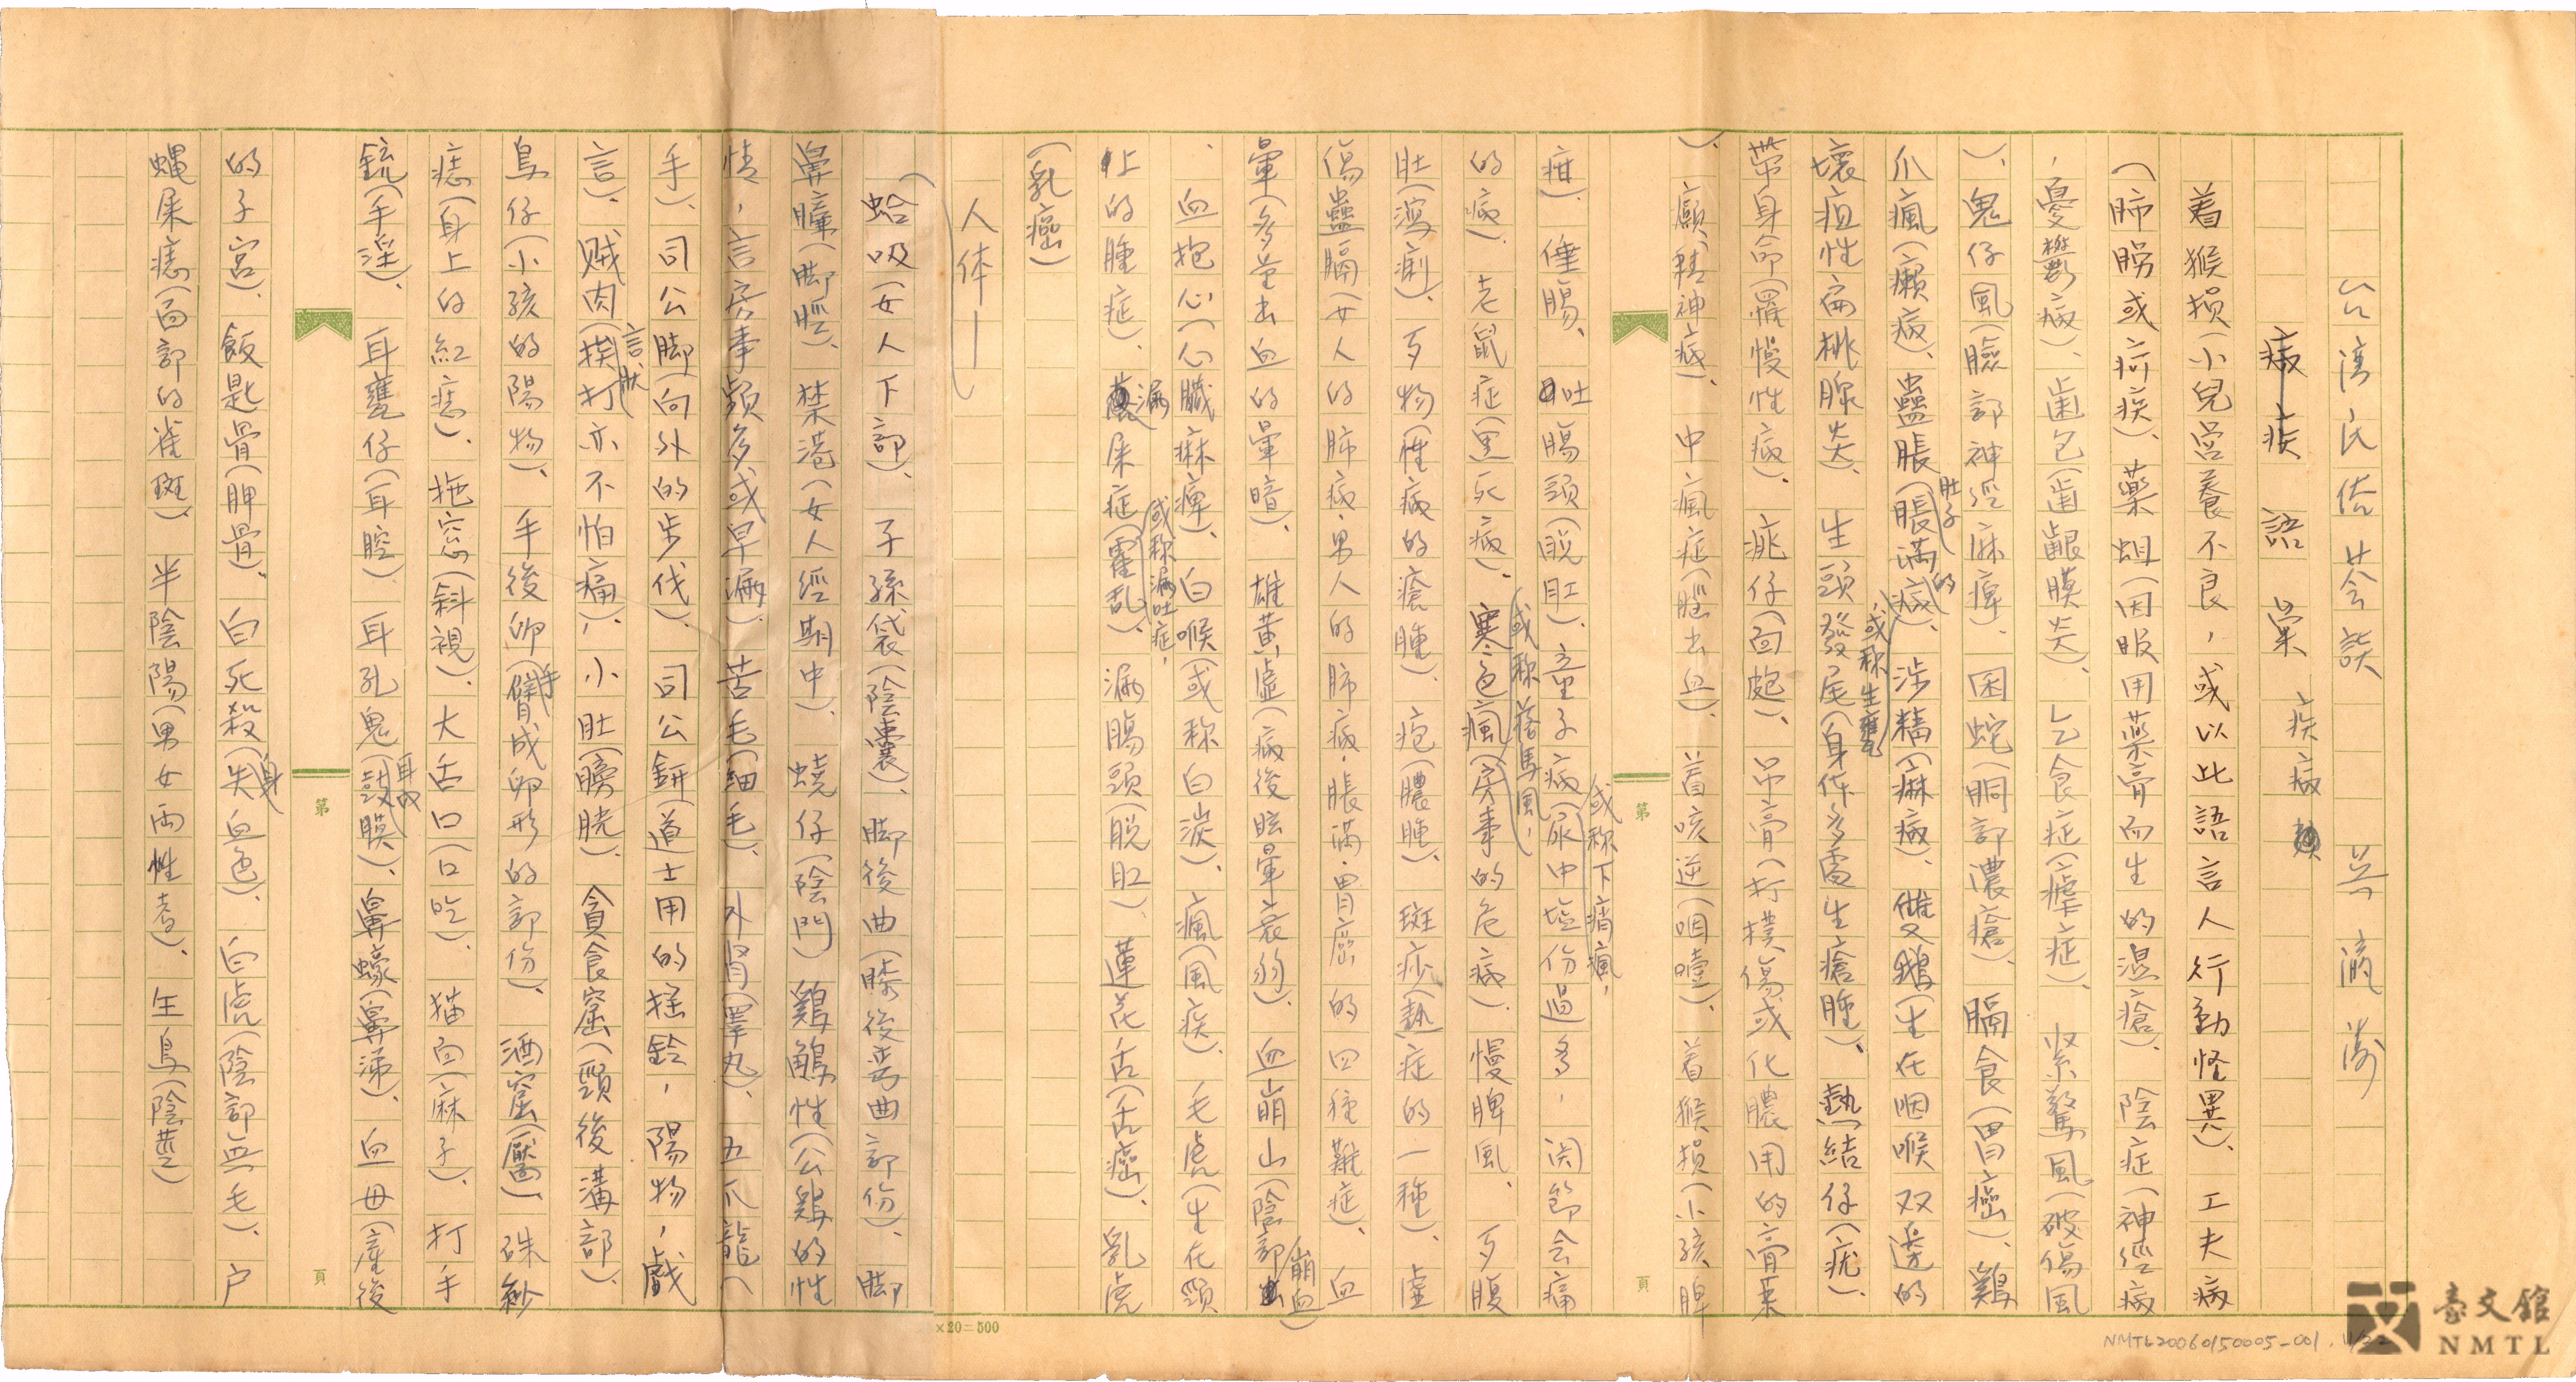 台湾民俗薈談 吳瀛濤
疾病語彙 疾病
着猴損(小兒営養不良，或以此語言人行動怪異)、工夫病
(肺癆或痨疾)、藥蛆(因服用薬膏而生的湿瘡)、陰症(神經病
，憂鬱病)、歯包(歯齦膜炎)、乙食症(瘧症)、紧驚風(破傷風
)、鬼仔風(臉部神經麻痺)、困蛇(胴部濃瘡)、膈食(胃癌)、鷄
爪瘋(癩病)、蠱脹(肚子的脹滿病)、涉精(痳病)、雙鵝(生在咽喉双邊的
壊疽性扁桃腺炎)、生頭發尾(或称生甕，身体多處生瘡腫)、熱結仔(疣)、
帶身命(罹慢性病)、㾗仔(面皰)、吊膏(打撲傷或化膿用的膏薬
)、癲(精神病)、中瘋症(腦出血)、着咳逆(咽噎)、着猴損(小孩脾
疳)、倕腸、吐腸頭(脫肛)、童子病(或称下痟瘋，尿中塩份過多，関節会痛
的病)、老鼠症(黑死病)、寒色瘋(或称落馬風，房事的危病)、慢脾風、歹腹
肚(瀉痢)、歹物(性病的瘡腫)、疱(膿腫)、斑痧(熱症的一種)、虚
傷蠱膈(女人的肺病，男人的肺病，脹滿，胃癌的四種難症)、血
暈(多量出血的暈暗)、雄黃虚(病後眩暈衰弱)、血崩山(陰部崩血)
、血抱心(心臓麻痺)、白喉(或称白淡)、瘋(風疾)、毛虎(生在頸
上的腫症)、漏屎症(或称漏吐症，霍乱)、漏腸頭(脫肛)、蓮花舌(舌癌)、乳虎
(乳癌)
(人体——)
蛤吸(女人下部)、子孫袋(陰囊)、脚後曲(膝後弯曲部份)、脚
鼻臁(脚脛)、禁港(女人經期中)、蟯仔(陰門)、鷄鵤性(公鷄的性
情，言房事頻多或早漏)、苦毛(細毛)、外肾(睪丸)、五爪龍(
手)、司公脚(向外的歩伐)、司公鈃(道士用的揺鈴，陽物，戲
言)、賊肉(言狀挨打亦不怕痛)、小肚(膀胱)、貪食窟(頸後溝部)、
鳥仔(小孩的陽物)、手後卵(手臂成卵形的部份)、酒窟(靨)、硃紗
痣(身上的紅痣)、拖窓(斜視)、大舌口(口吃)、猫面(麻子)、打手
銃(手淫)、耳甕仔(耳腔)、耳孔鬼(耳内鼓膜)、鼻蠔(鼻涕)、血母(産後
的子宮)、飯匙骨(胛骨)、白死殺(身失血色)、白虎(陰部無毛)、户
蝿屎痣(面部的雀斑)、半陰陽(男女両性者)、生鳥(陰莖)
第 頁
第 頁
×20=500
NMTL20060150005-001
臺文館
NMTL